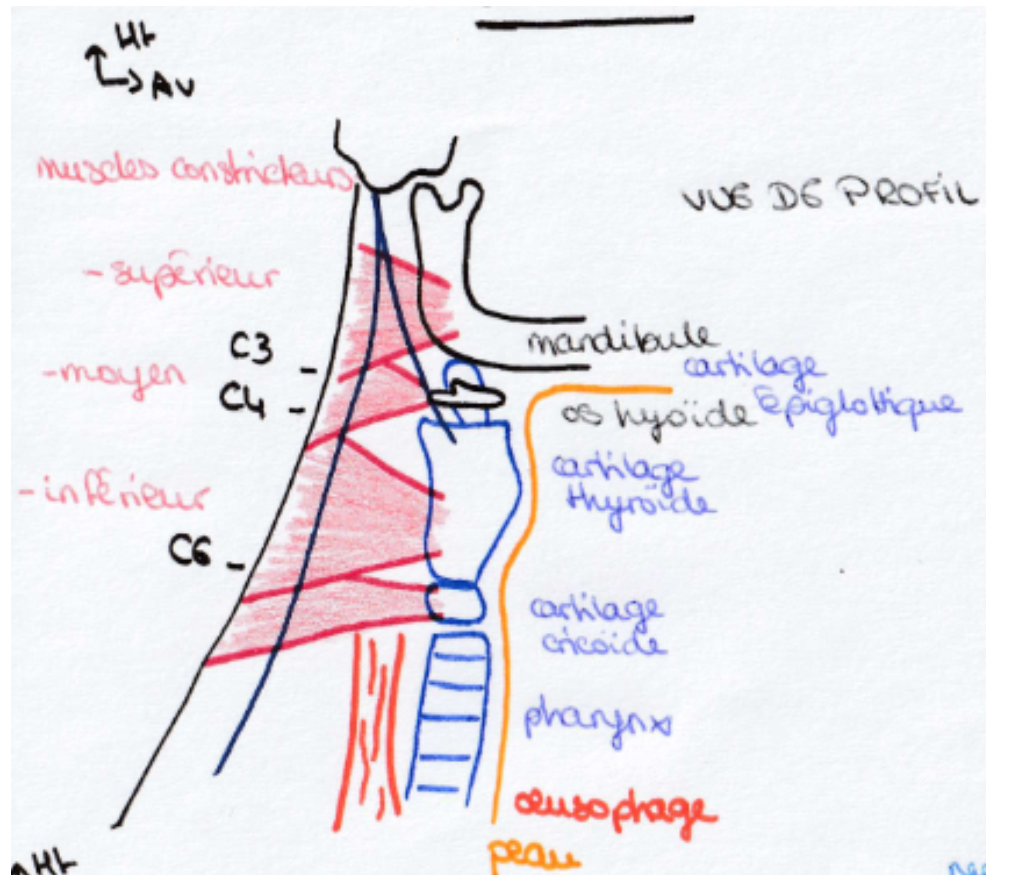 Ht
Av
muscles constricteurs
VUE DE PROFIL
- supérieur
C3
mandibule
- moyen
cartilage
C4
os hyoïde épiglottique
cartilage
thyroïde
- inférieur
C6
cartilage
cricoïde
pharynx
œusophage
peau
Ht